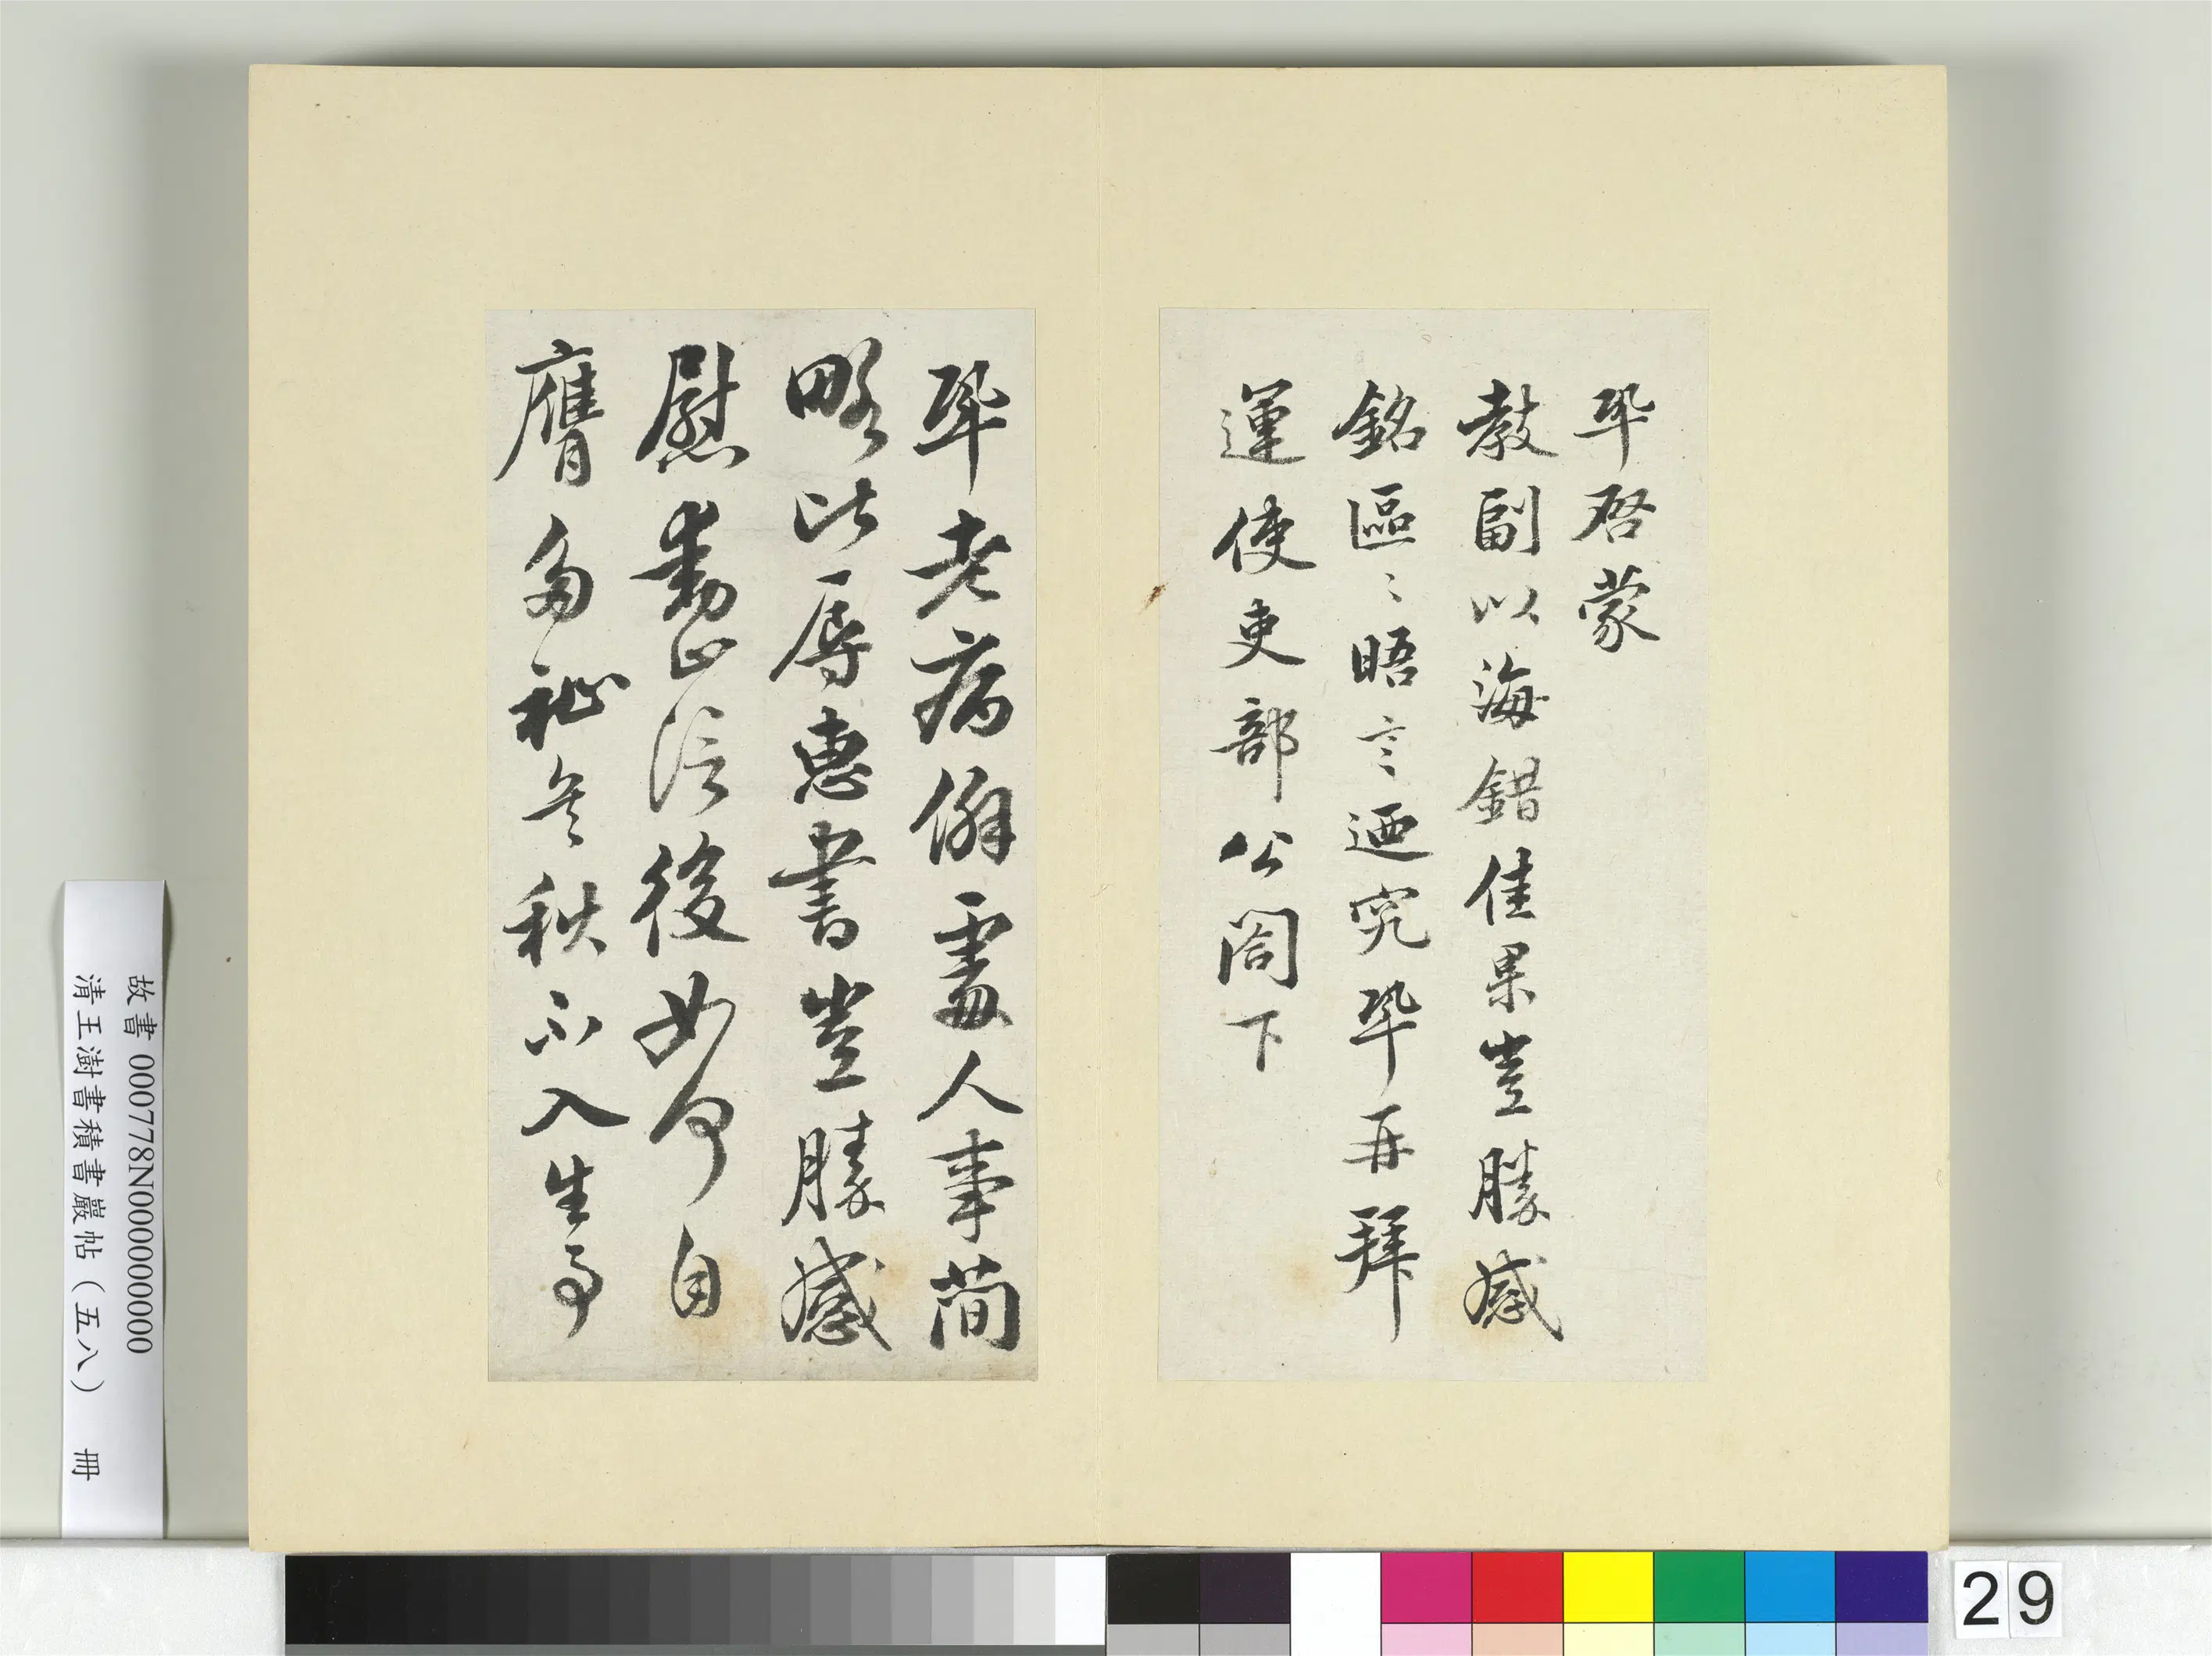 巩啓蒙
教副以海錯佳果豈勝感
銘區〻晤言迺究巩再拜
運使吏部公閤下
巩老病僻處人事簡
略比辱惠書豈勝感
慰
後如何自
膺多祉冬秋不入生事
故書 000778N000000000
清王澍書積書巖帖（五八） 冊
29